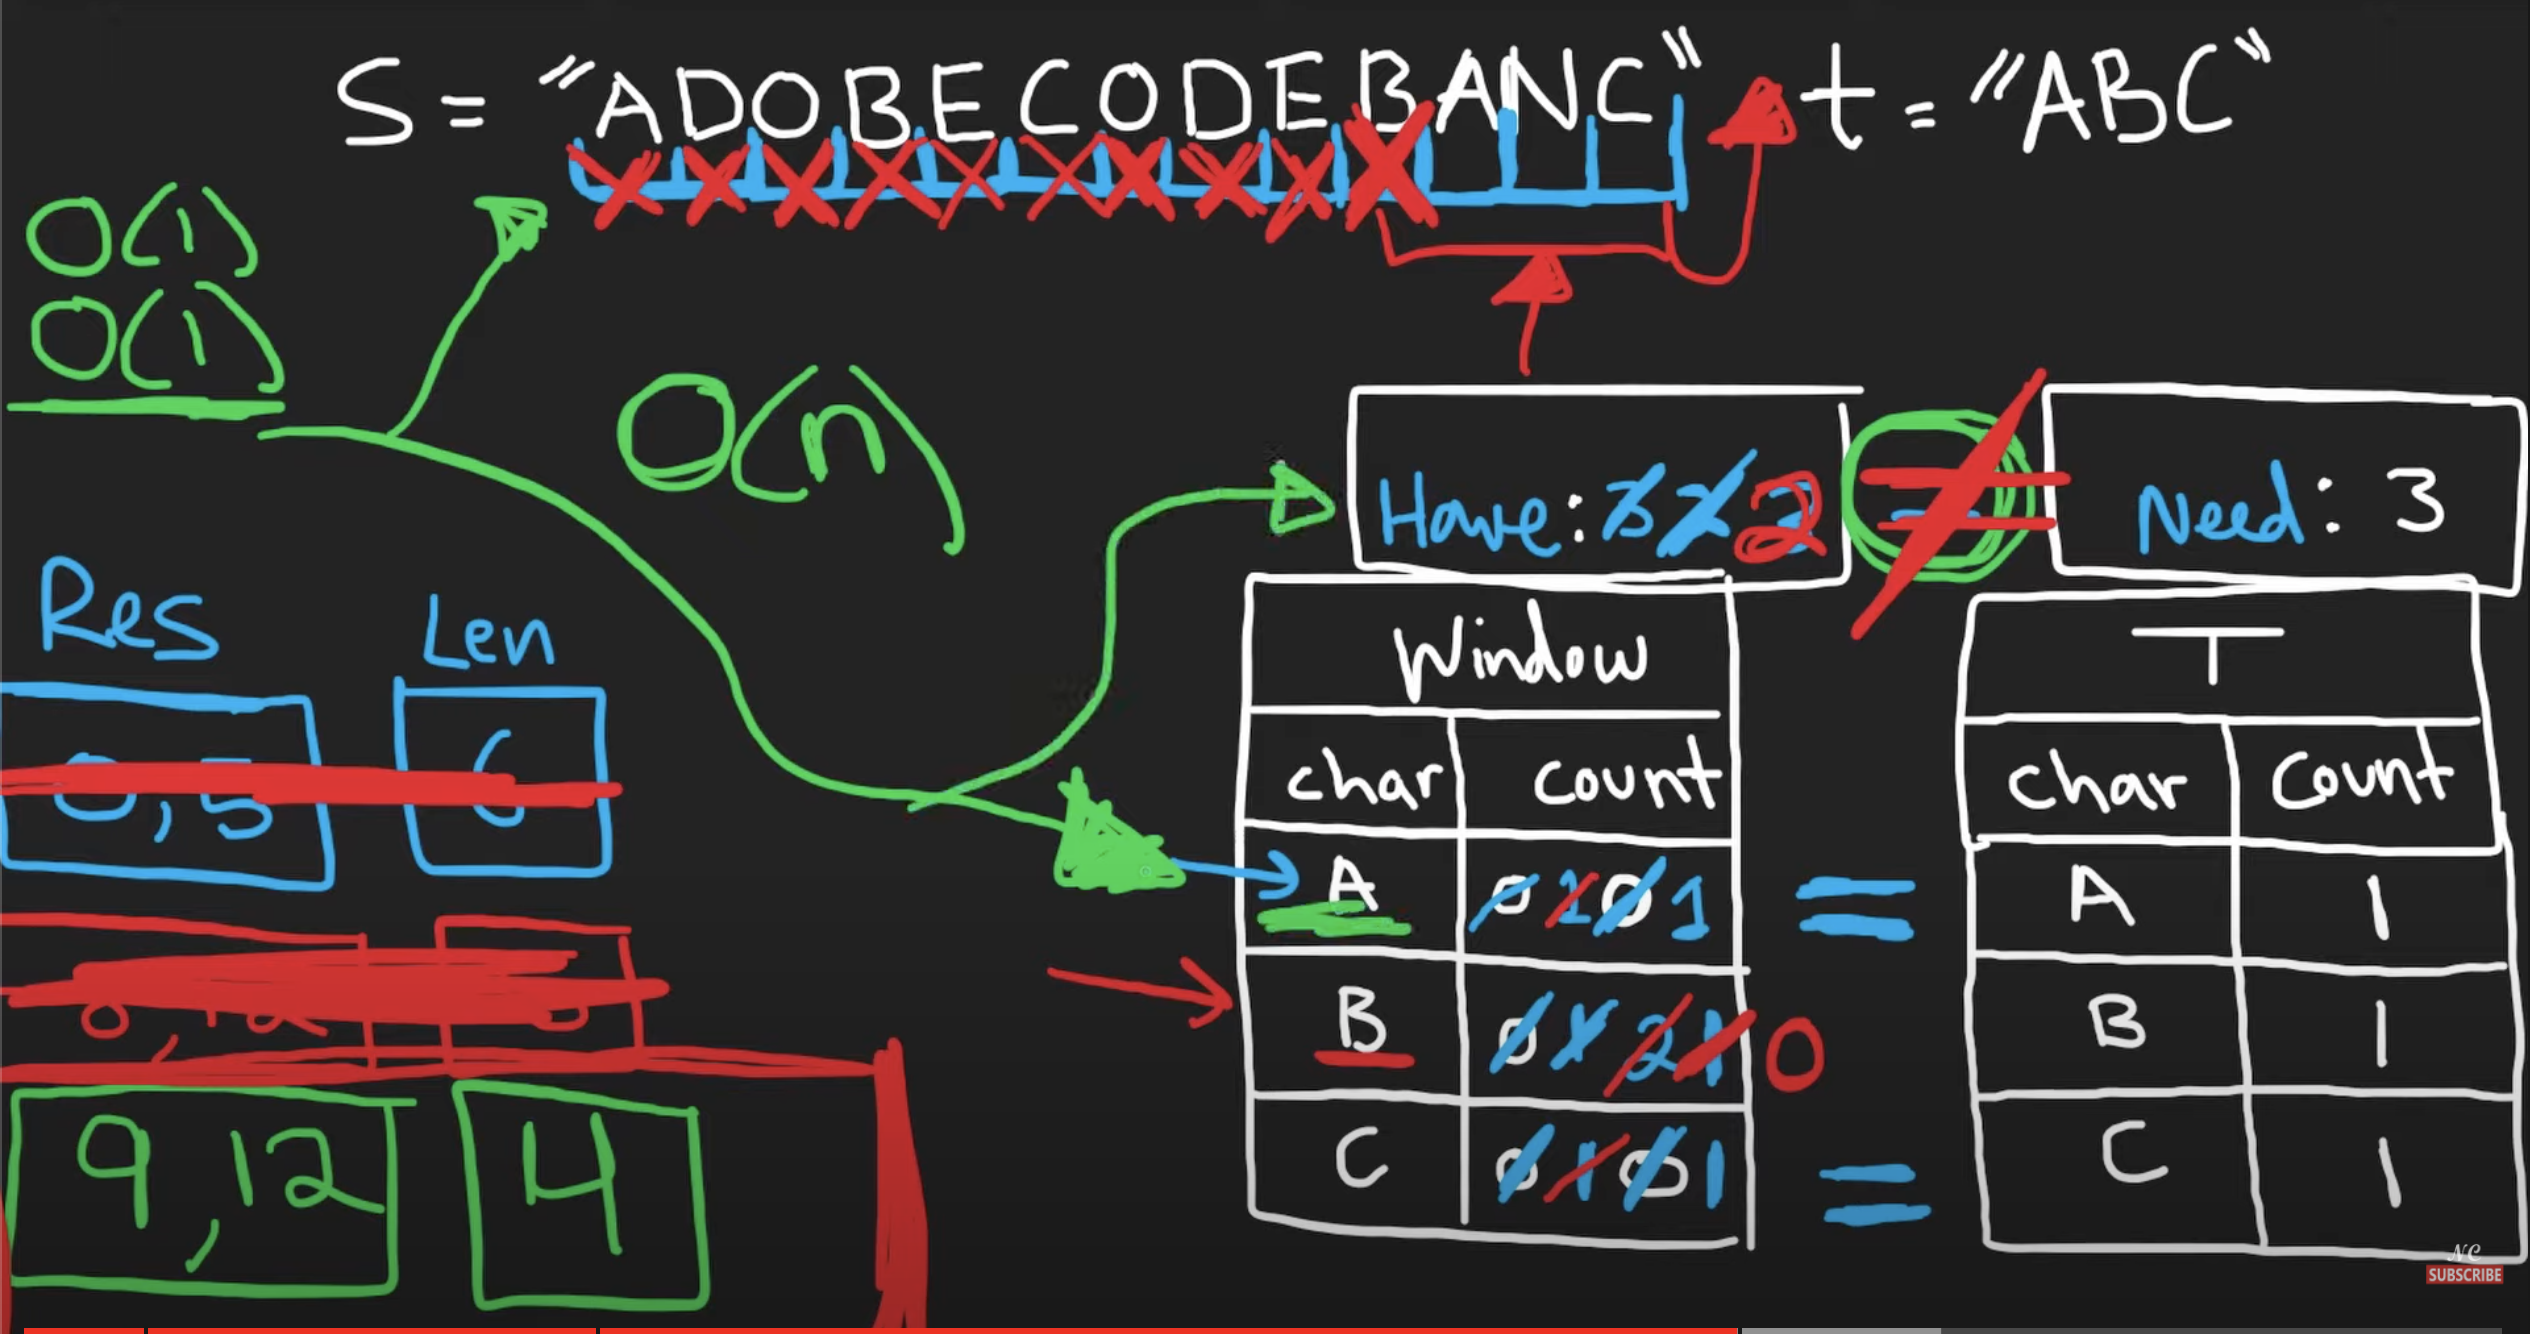 S = "ADOBECODEBANC" t = "ABC"
O(1)
O(1)
O(n)
Have: 3 2 2 Need: 3
Res Len
0,5 6
9,12 4
Window
char count
A 0 1 0 1 =
B 0 1 2 1 0
C 0 1 0 1 =
T
char count
A 1
B 1
C 1
NC
SUBSCRIBE